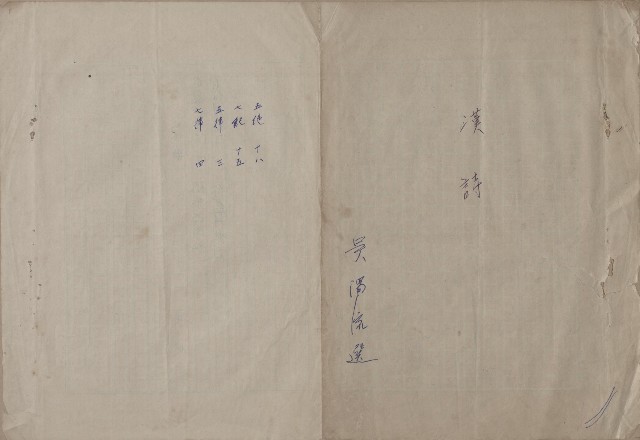 漢詩
吳濁流選
五絕 十八
七絕 十五
五律 三
七律 四